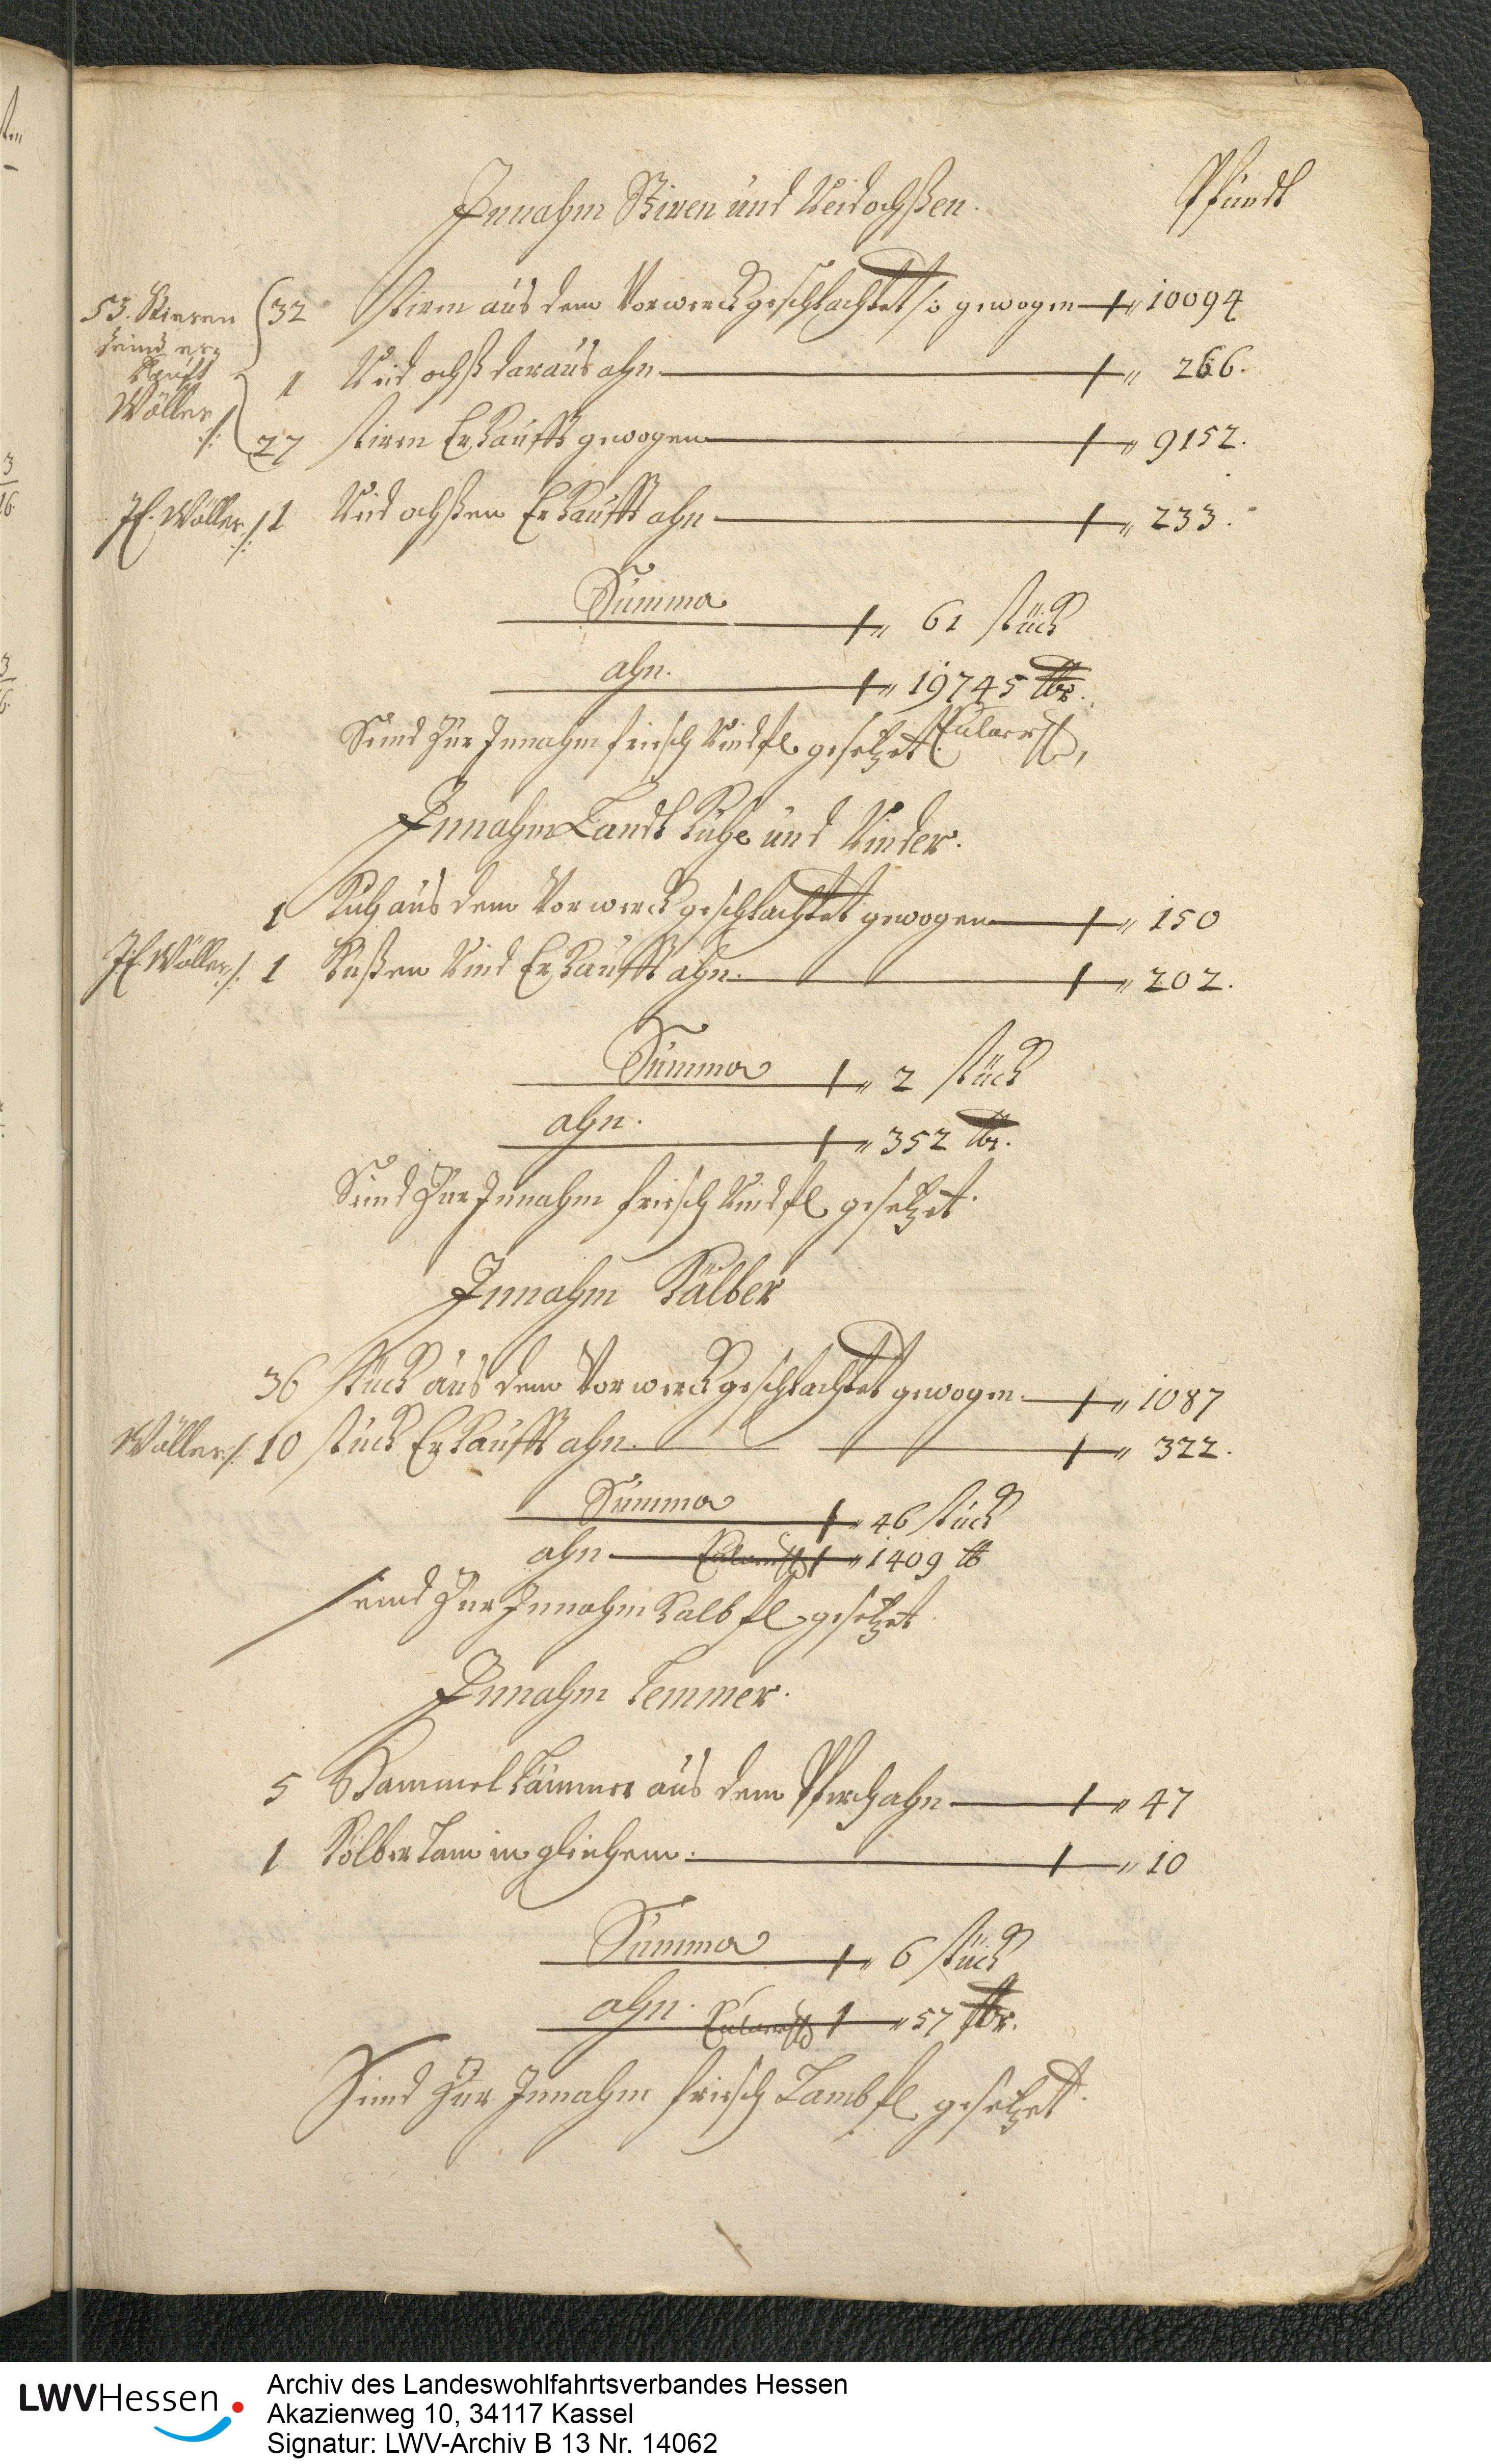 Innahm Stiren und Reidochßen.
Pfundt
53. Stieren
seind er=
kauft
Wöller /:
32 stiren aus dem Vorwerck geschlachtet so gewogen 10094
1 Reid ochß daraus ahn 266.
27 stiren Erkaufft gewogen 9152.
Jf. Wöller /: 1 Reid ochßen Erkaufft ahn 233.
Summa 61 stück
ahn. 19745 lbr.
Seind Zur Innahm frisch Rindfl. gesetzet.
Innahm Landt Kühe und Rinder.
1 Kuh aus dem Vorwerck geschlachtet gewogen 150
Jf. Wöller /: 1 Rind Erkaufft ahn. 202.
Summa 2 stück
ahn. 352 lbr.
Seind Zur Innahm frisch Rindfl gesetzet.
Innahm Kälber
36 stück aus dem Vorwerck geschlachtet gewogen 1087
Wöller /: 10 stück Erkaufft ahn. 322.
Summa 46 stück
ahn 1409 lb
seind Zur Innahm Kalbfl. gesetzet.
Innahm Lemmer.
5 Hammel Lämmer aus dem Pferch ahn 47
1 Kölber Lam in gleichem. 10
Summa 6 stück
ahn. 57 lbr.
Seind Zur Innahm frisch Lambfl gesetzet.
LWVHessen
Archiv des Landeswohlfahrtsverbandes Hessen
Akazienweg 10, 34117 Kassel
Signatur: LWV-Archiv B 13 Nr. 14062